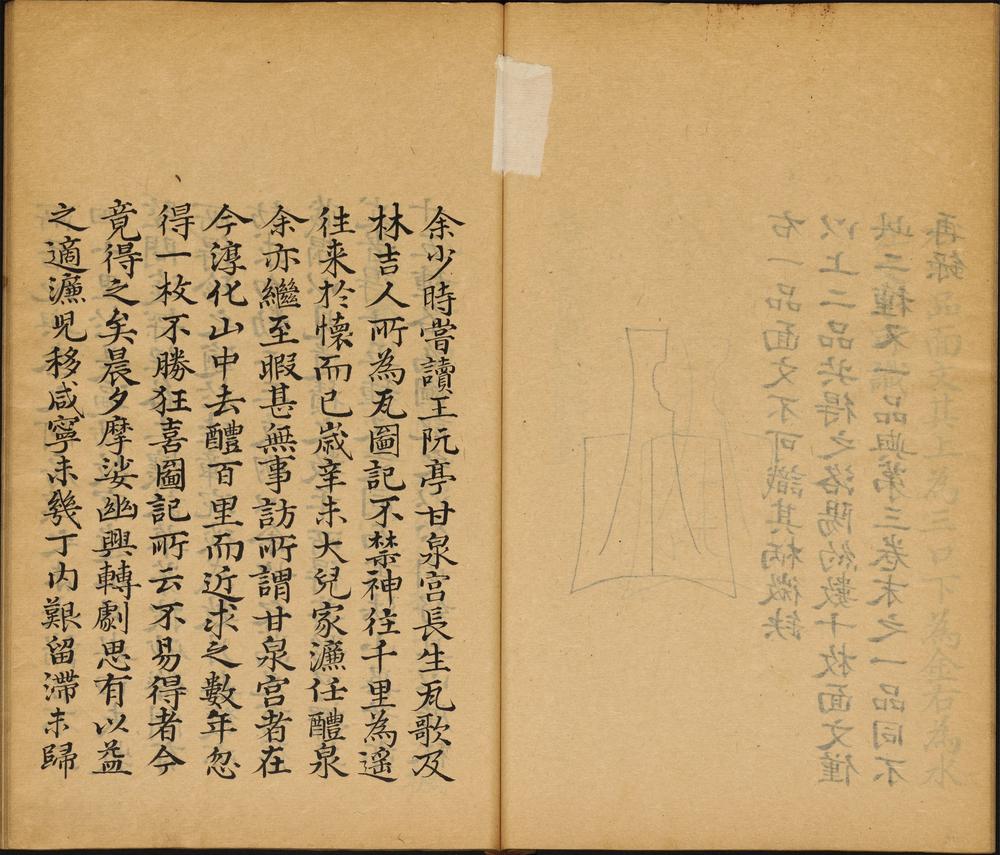 余少時嘗讀王阮亭甘泉宮長生瓦歌及
林吉人所為瓦圖記不禁神往千里為遥
往来於懷而已歲辛未大兒家濂任醴泉
余亦繼至暇甚無事訪所謂甘泉宮者在
今淳化山中去醴百里而近求之數年忽
得一枚不勝狂喜圖記所云不易得者今
竟得之矣晨夕摩娑幽興轉劇思有以益
之適濂児移咸寧未幾丁内艱留滯未歸